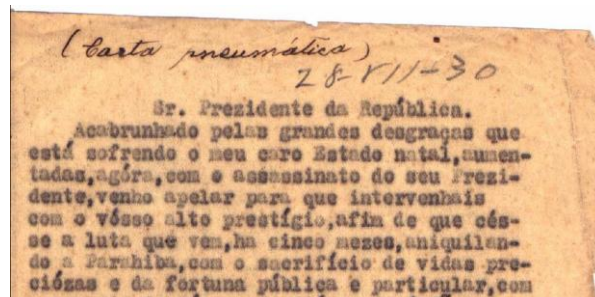 (Carta pneumática)
28-VII-30
Sr. Prezidente da República.
Acabrunhado pelas grandes desgraças que
está sofrendo o meu caro Estado natal,aumen-
tadas,agóra,com o assassinato do seu Prezi-
dente,venho apelar para que intervenhais
com o vósso alto prestígio,afim de que cés-
se a luta que vem,ha cinco mezes,aniquilan-
do a Parahiba,com o sacrifício de vidas pre-
ciózas e da fortuna pública e particular,com